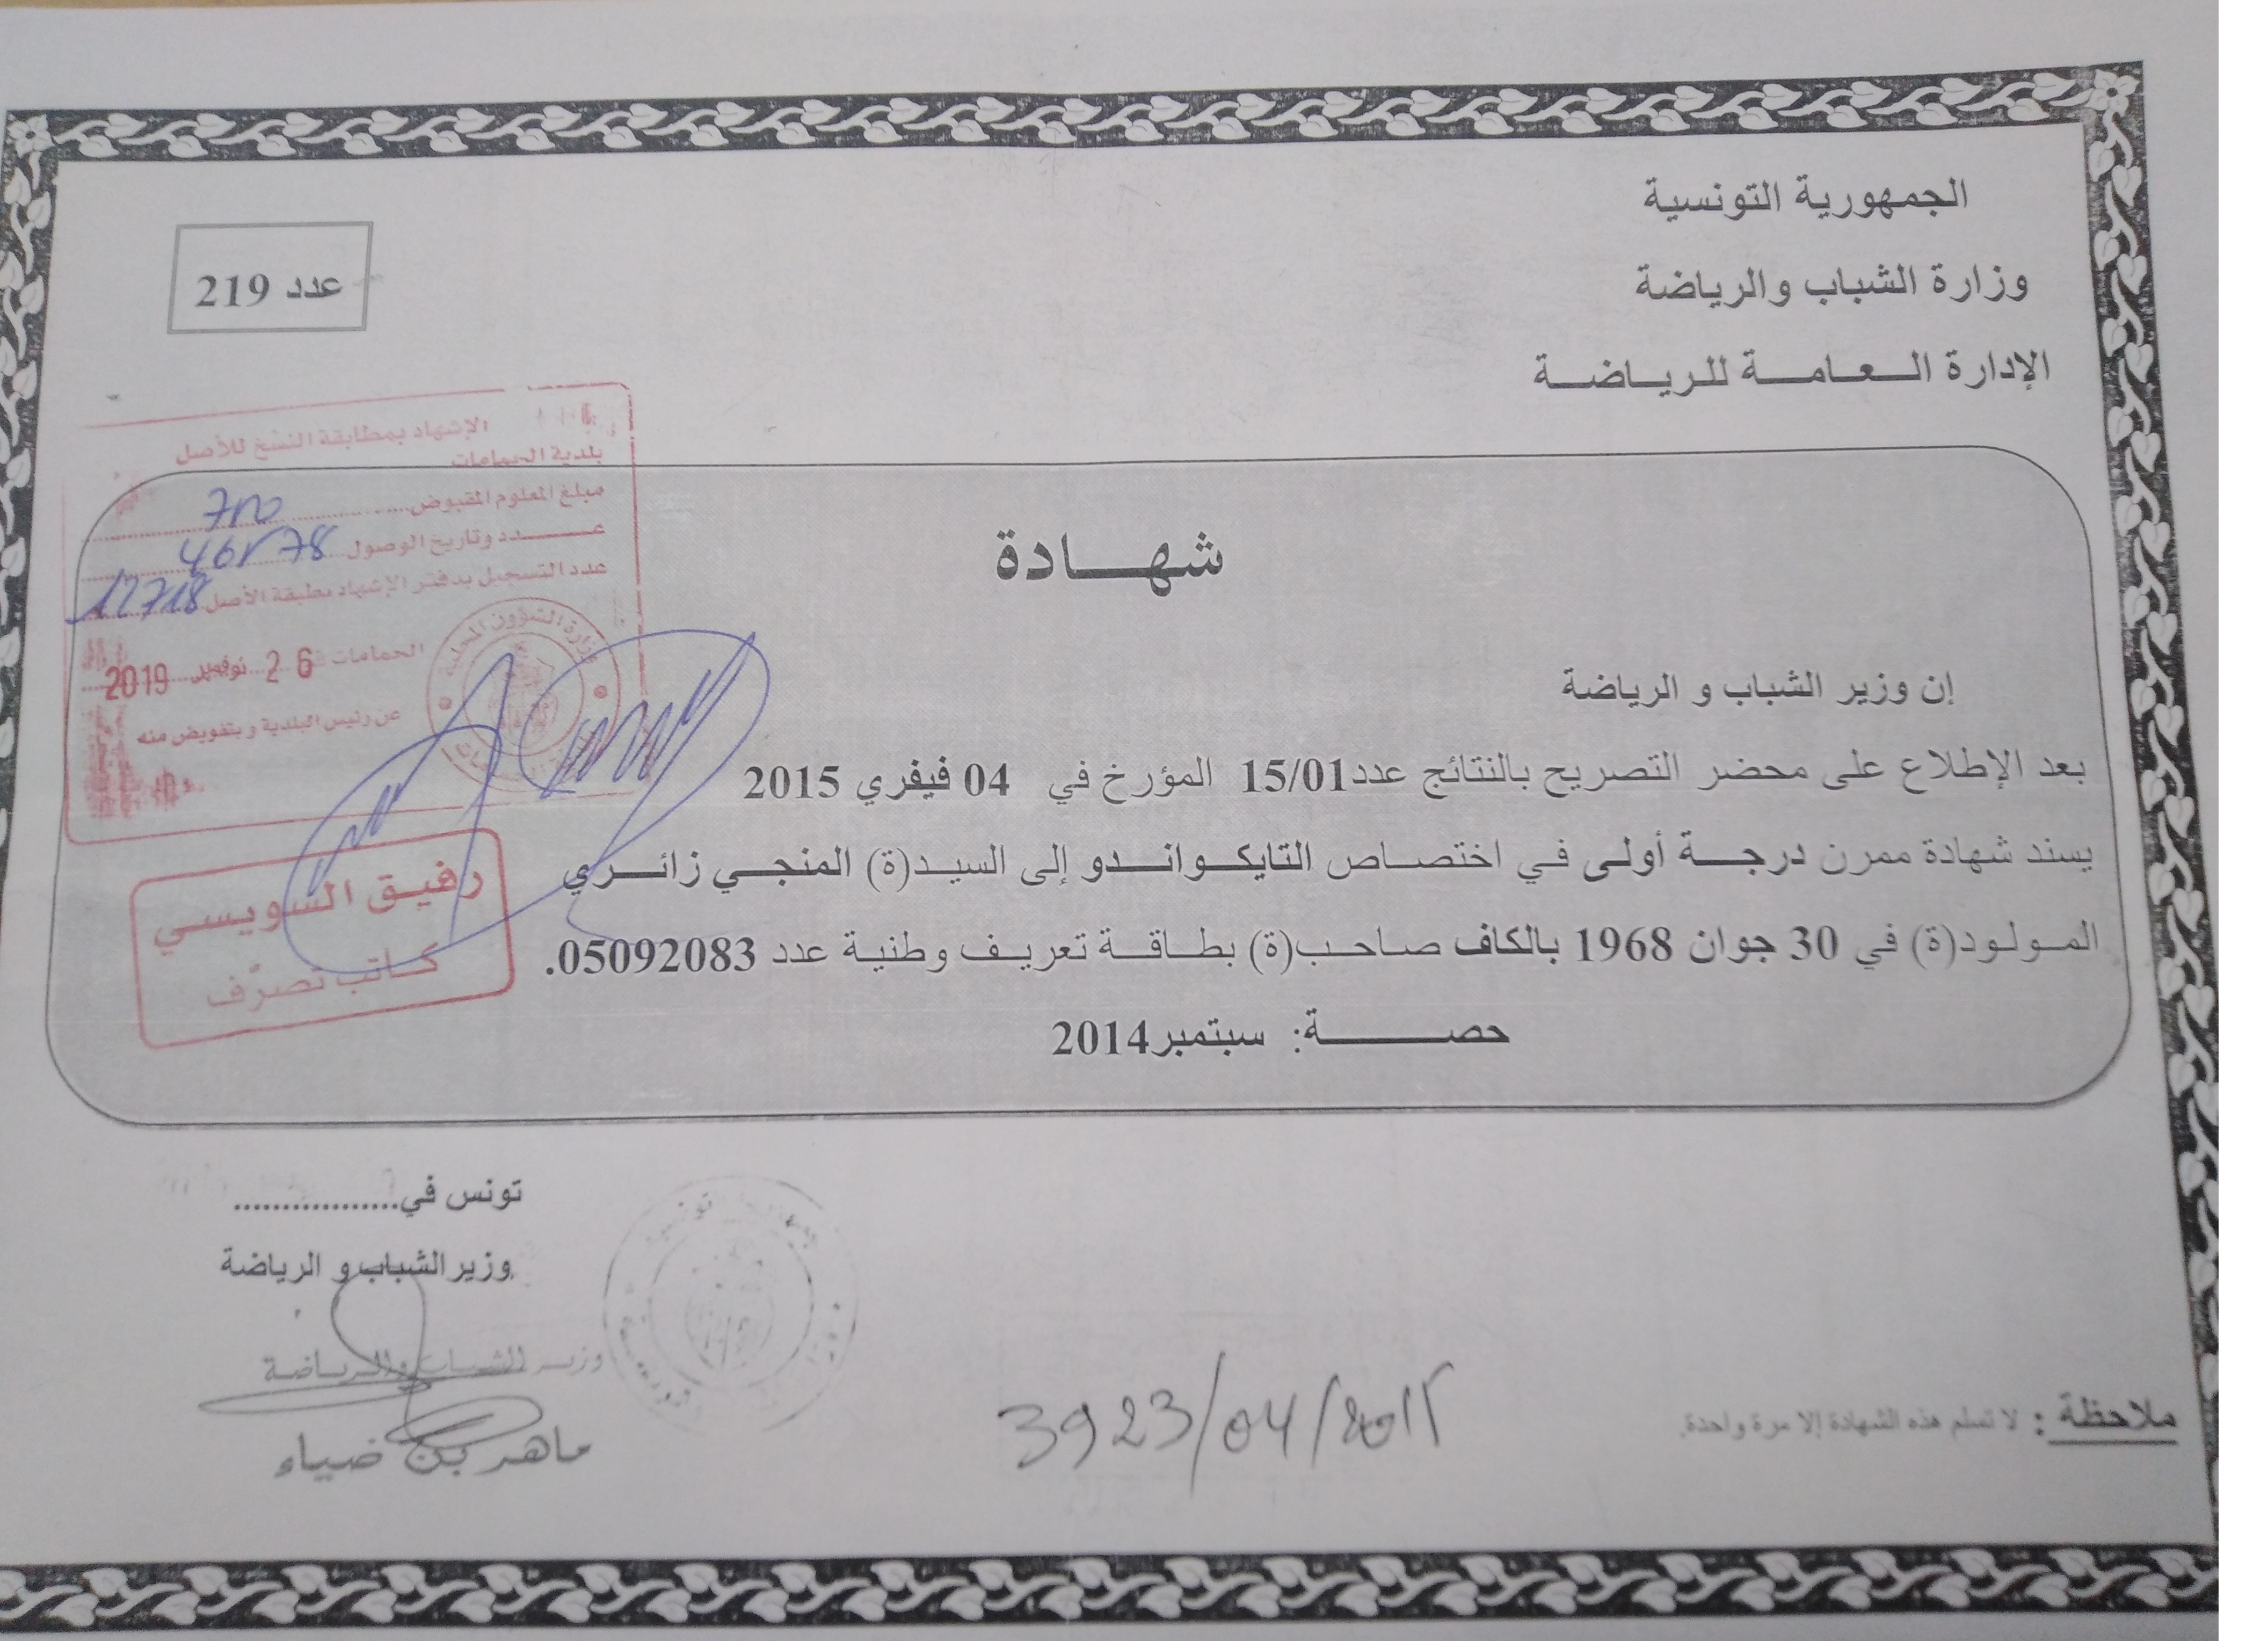 الجمهورية التونسية
وزارة الشباب والرياضة
الإدارة العامة للرياضة
عدد 219
الإشهاد بمطابقة النسخ للأصل
بلدية الحمامات
مبلغ المعلوم المقبوض
عدد وتاريخ الوصول
عدد التسجيل بدفتر الإشهاد بمطابقة الأصل 12718
الحمامات 26 نوفمبر 2019
عن رئيس البلدية و بتفويض منه
وزارة الشؤون المحلية
رفيق السويسي
كاتب تصرّف
شهادة
إن وزير الشباب و الرياضة
بعد الإطلاع على محضر التصريح بالنتائج عدد15/01 المؤرخ في 04 فيفري 2015
يسند شهادة ممرن درجة أولى في اختصاص التايكواندو إلى السيد(ة) المنجي زائري
المولود(ة) في 30 جوان 1968 بالكاف صاحب(ة) بطاقة تعريف وطنية عدد 05092083.
حصة: سبتمبر2014
تونس في.................
وزير الشباب و الرياضة
وزير الشباب والرياضة
ماهر بن ضياء
3923/04/2012
ملاحظة : لا تسلم هذه الشهادة إلا مرة واحدة.